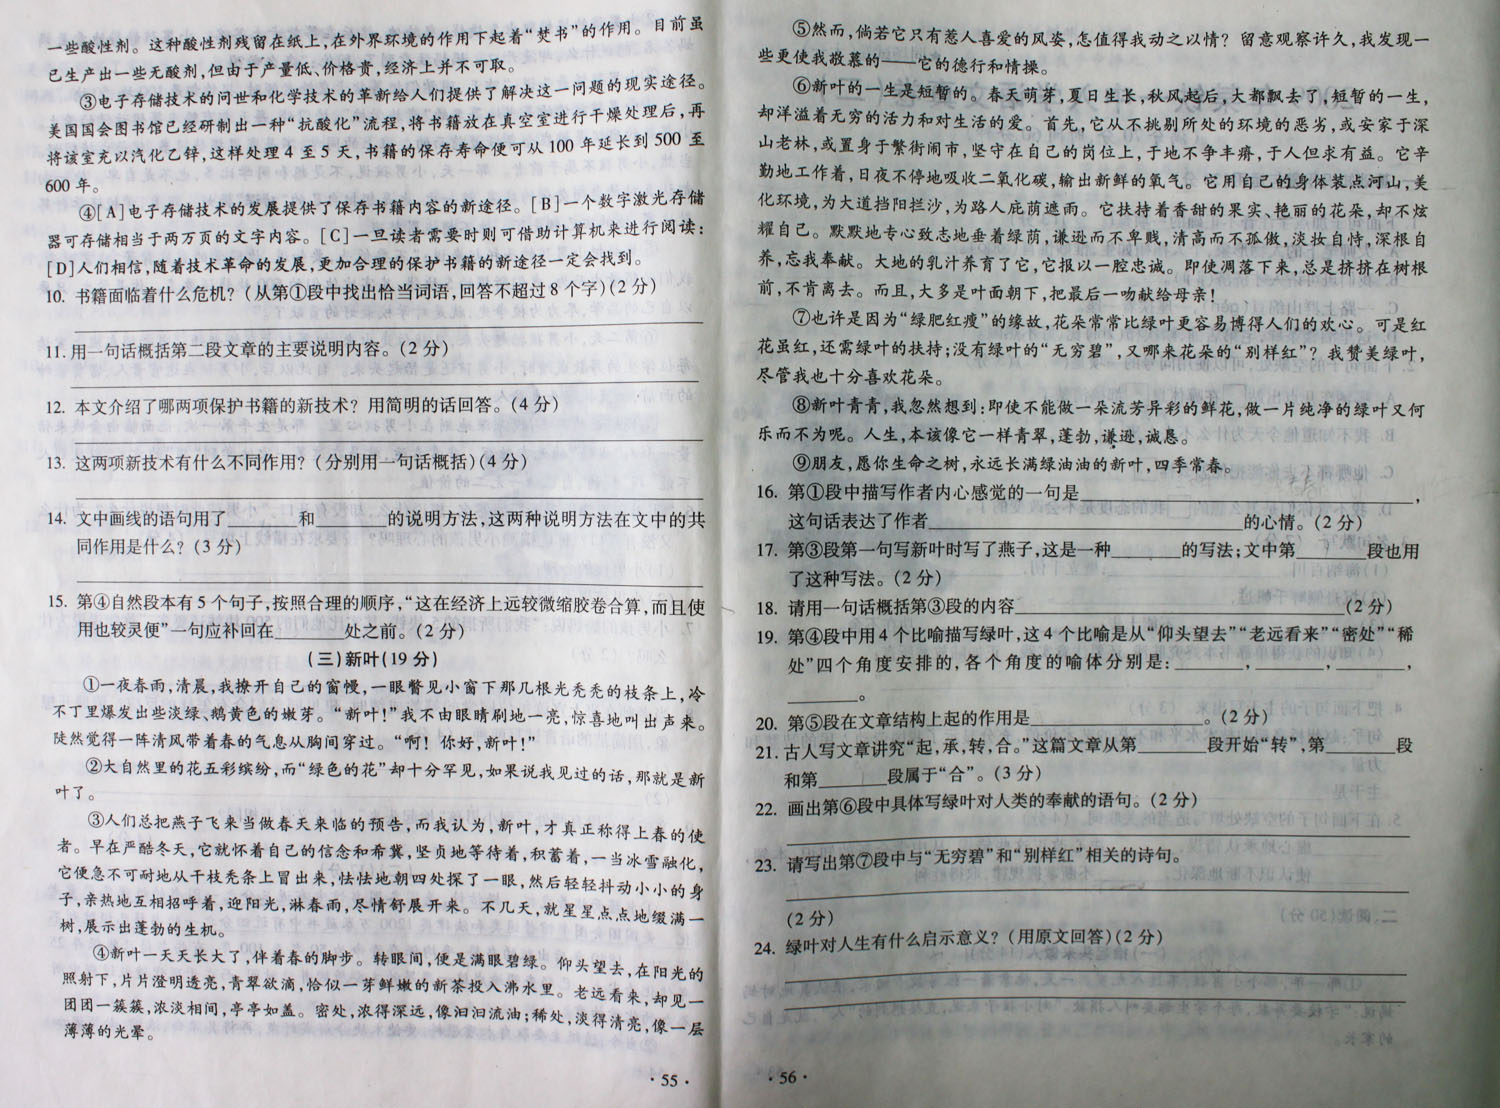 一些酸性剂。这种酸性剂残留在纸上,在外界环境的作用下起着“焚书”的作用。目前虽
已生产出一些无酸剂,但由于产量低、价格贵,经济上并不可取。
③电子存储技术的问世和化学技术的革新给人们提供了解决这一问题的现实途径。
美国国会图书馆已经研制出一种“抗酸化”流程,将书籍放在真空室进行干燥处理后,再
将该室充以汽化乙锌,这样处理4至5天,书籍的保存寿命便可从100年延长到500至
600年。
④[A]电子存储技术的发展提供了保存书籍内容的新途径。[B]一个数字激光存储
器可存储相当于两万页的文字内容。[C]一旦读者需要时则可借助计算机来进行阅读:
[D]人们相信,随着技术革命的发展,更加合理的保护书籍的新途径一定会找到。
10. 书籍面临着什么危机?(从第①段中找出恰当词语,回答不超过8个字)(2分)
11. 用一句话概括第二段文章的主要说明内容。(2分)
12. 本文介绍了哪两项保护书籍的新技术?用简明的话回答。(4分)
13. 这两项新技术有什么不同作用?(分别用一句话概括)(4分)
14. 文中画线的语句用了______和______的说明方法,这两种说明方法在文中的共
同作用是什么?(3分)
15. 第④自然段本有5个句子,按照合理的顺序,“这在经济上远较微缩胶卷合算,而且使
用也较灵便”一句应补回在______处之前。(2分)
(三)新叶(19分)
①一夜春雨,清晨,我撩开自己的窗幔,一眼瞥见小窗下那几根光秃秃的枝条上,冷
不丁里爆发出些淡绿、鹅黄色的嫩芽。“新叶!”我不由眼睛刷地一亮,惊喜地叫出声来。
陡然觉得一阵清风带着春的气息从胸间穿过。“啊!你好,新叶!”
②大自然里的花五彩缤纷,而“绿色的花”却十分罕见,如果说我见过的话,那就是新
叶了。
③人们总把燕子飞来当做春天来临的预告,而我认为,新叶,才真正称得上春的使
者。早在严酷冬天,它就怀着自己的信念和希冀,坚贞地等待着,积蓄着,一当冰雪融化,
它便急不可耐地从干枝秃条上冒出来,怯怯地朝四处探了一眼,然后轻轻抖动小小的身
子,亲热地互相招呼着,迎阳光,淋春雨,尽情舒展开来。不几天,就星星点点地缀满一
树,展示出蓬勃的生机。
④新叶一天天长大了,伴着春的脚步。转眼间,便是满眼碧绿。仰头望去,在阳光的
照射下,片片澄明透亮,青翠欲滴,恰似一芽鲜嫩的新茶投入沸水里。老远看来,却见一
团团一簇簇,浓淡相间,亭亭如盖。密处,浓得深远,像汩汩流油;稀处,淡得清亮,像一层
薄薄的光晕。
· 55 ·
⑤然而,倘若它只有惹人喜爱的风姿,怎值得我动之以情?留意观察许久,我发现一
些更使我敬慕的——它的德行和情操。
⑥新叶的一生是短暂的。春天萌芽,夏日生长,秋风起后,大都飘去了,短暂的一生,
却洋溢着无穷的活力和对生活的爱。首先,它从不挑剔所处的环境的恶劣,或安家于深
山老林,或置身于繁街闹市,坚守在自己的岗位上,于地不争丰瘠,于人但求有益。它辛
勤地工作着,日夜不停地吸收二氧化碳,输出新鲜的氧气。它用自己的身体装点河山,美
化环境,为大道挡阳拦沙,为路人庇荫遮雨。它扶持着香甜的果实、艳丽的花朵,却不炫
耀自己。默默地专心致志地垂着绿荫,谦逊而不卑贱,清高而不孤傲,淡妆自恃,深根自
养,忘我奉献。大地的乳汁养育了它,它报以一腔忠诚。即使凋落下来,总是挤挤在树根
前,不肯离去。而且,大多是叶面朝下,把最后一吻献给母亲!
⑦也许是因为“绿肥红瘦”的缘故,花朵常常比绿叶更容易博得人们的欢心。可是红
花虽红,还需绿叶的扶持;没有绿叶的“无穷碧”,又哪来花朵的“别样红”?我赞美绿叶,
尽管我也十分喜欢花朵。
⑧新叶青青,我忽然想到:即使不能做一朵流芳异彩的鲜花,做一片纯净的绿叶又何
乐而不为呢。人生,本该像它一样青翠,蓬勃,谦逊,诚恳。
⑨朋友,愿你生命之树,永远长满绿油油的新叶,四季常春。
16. 第①段中描写作者内心感觉的一句是______,
这句话表达了作者______的心情。(2分)
17. 第③段第一句写新叶时写了燕子,这是一种______的写法;文中第______段也用
了这种写法。(2分)
18. 请用一句话概括第③段的内容______(2分)
19. 第④段中用4个比喻描写绿叶,这4个比喻是从“仰头望去”“老远看来”“密处”“稀
处”四个角度安排的,各个角度的喻体分别是:______,______,______,
______。
20. 第⑤段在文章结构上起的作用是______。(2分)
21. 古人写文章讲究“起,承,转,合。”这篇文章从第______段开始“转”,第______段
和第______段属于“合”。(3分)
22. 画出第⑥段中具体写绿叶对人类的奉献的语句。(2分)
23. 请写出第⑦段中与“无穷碧”和“别样红”相关的诗句。
(2分)
24. 绿叶对人生有什么启示意义?(用原文回答)(2分)
· 56 ·